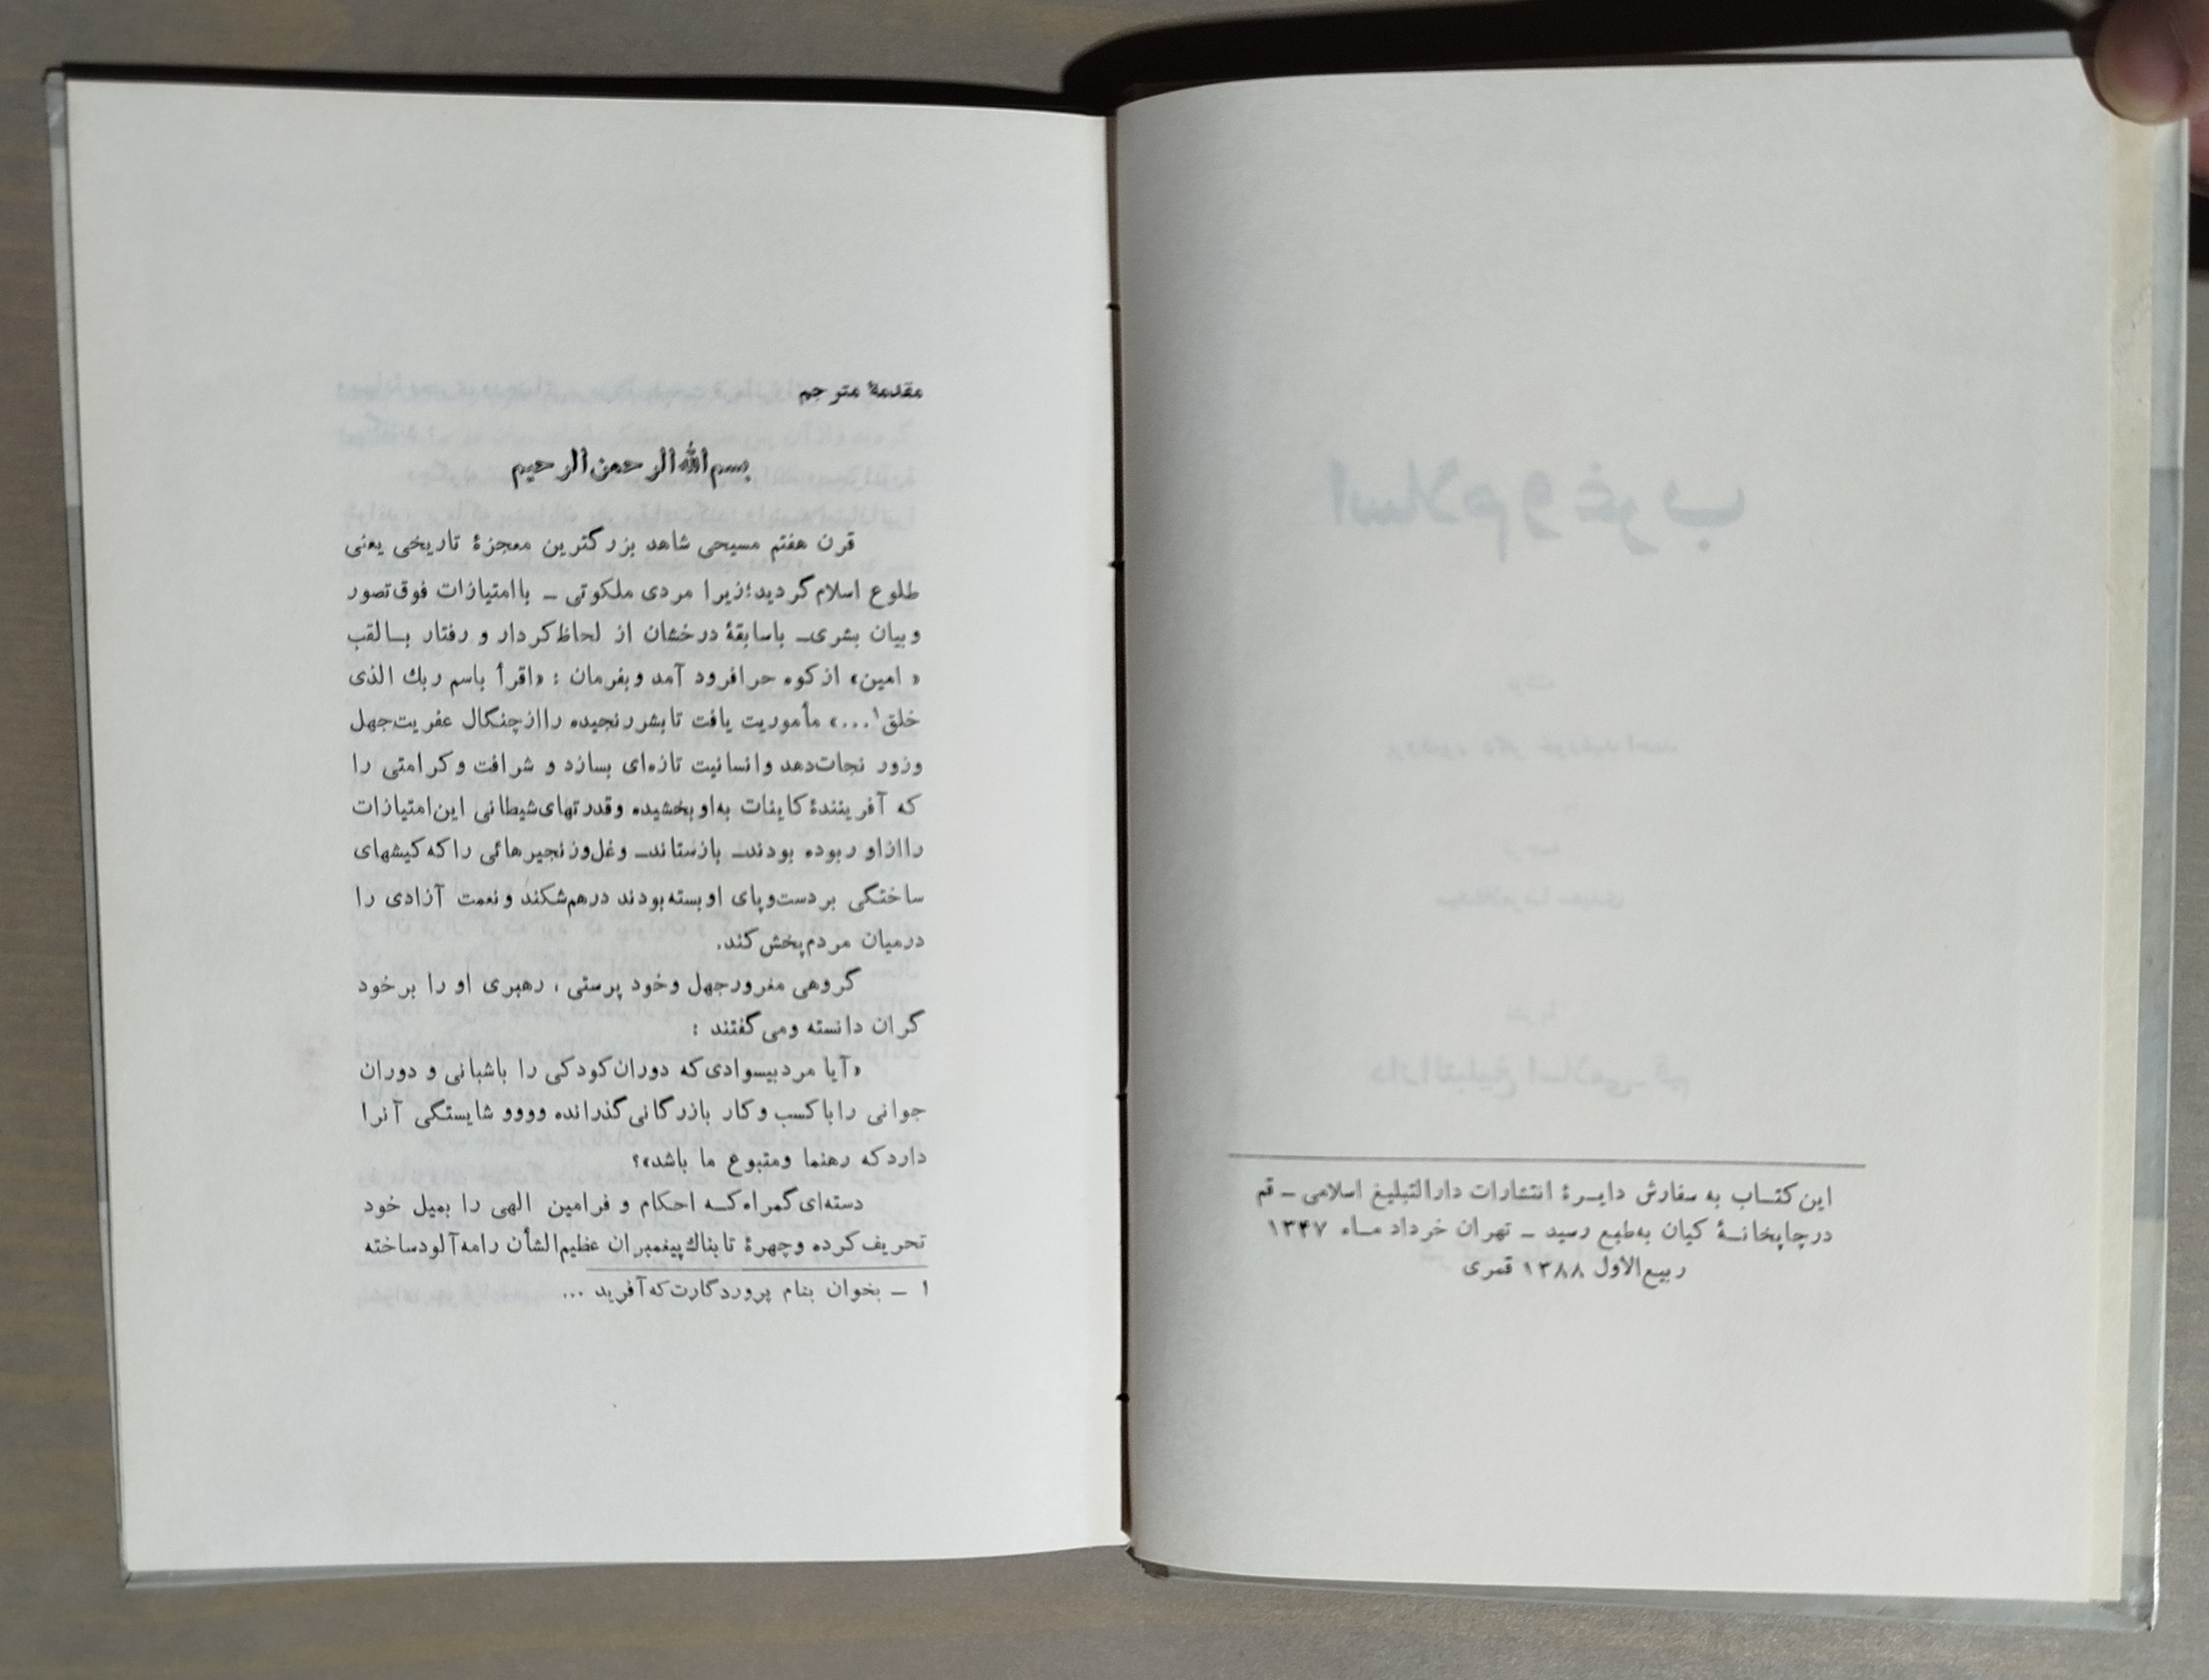 این کتاب به سفارش دایرهٔ انتشارات دارالتبلیغ اسلامی ـ قم
درچاپخانهٔ کیان به‌طبع رسید ـ تهران خرداد ماه ۱۳۴۷
ربیع‌الاول ۱۳۸۸ قمری
مقدمهٔ مترجم
بسم‌الله‌الرحمن‌الرحیم
قرن هفتم مسیحی شاهد بزرگترین معجزهٔ تاریخی یعنی
طلوع اسلام گردید؛زیرا مردی ملکوتی ـ باامتیازات فوق‌تصور
وبیان بشری‌ـ باسابقهٔ درخشان از لحاظ‌کردار و رفتار بالقب
« امین» ازکوه حرافرود آمد وبفرمان : «اقرأ باسم ربك الذی
خلق۱...» مأموریت یافت تابشررنجیده راازچنگال عفریت‌جهل
وزور نجات‌دهد وانسانیت تازه‌ای بسازد و شرافت وکرامتی را
که آفرینندهٔ‌کاینات به‌اوبخشیده وقدرتهای‌شیطانی این‌امتیازات
راازاو ربوده بودندـ بازستاندـ وغل‌وزنجیرهائی راکه‌کیشهای
ساختگی بردست‌وپای اوبسته‌بودند درهم‌شکند ونعمت آزادی را
درمیان مردم‌پخش‌کند.
گروهی مغرورجهل وخود پرستی ، رهبری او را برخود
گران دانسته ومی‌گفتند :
«آیا مردبیسوادی‌که دوران‌کودکی را باشبانی و دوران
جوانی راباکسب وکار بازرگانی‌گذرانده وووو شایستگی آنرا
داردکه رهنما ومتبوع ما باشد»؟
دسته‌ای‌گمراه‌کـه احکام و فرامین الهی را بمیل خود
تحریف‌کرده وچهرهٔ تابناك‌پیغمبران عظیم‌الشأن رامه‌آلودساخته
۱ ـ بخوان بنام پروردگارت‌که‌آفرید ...